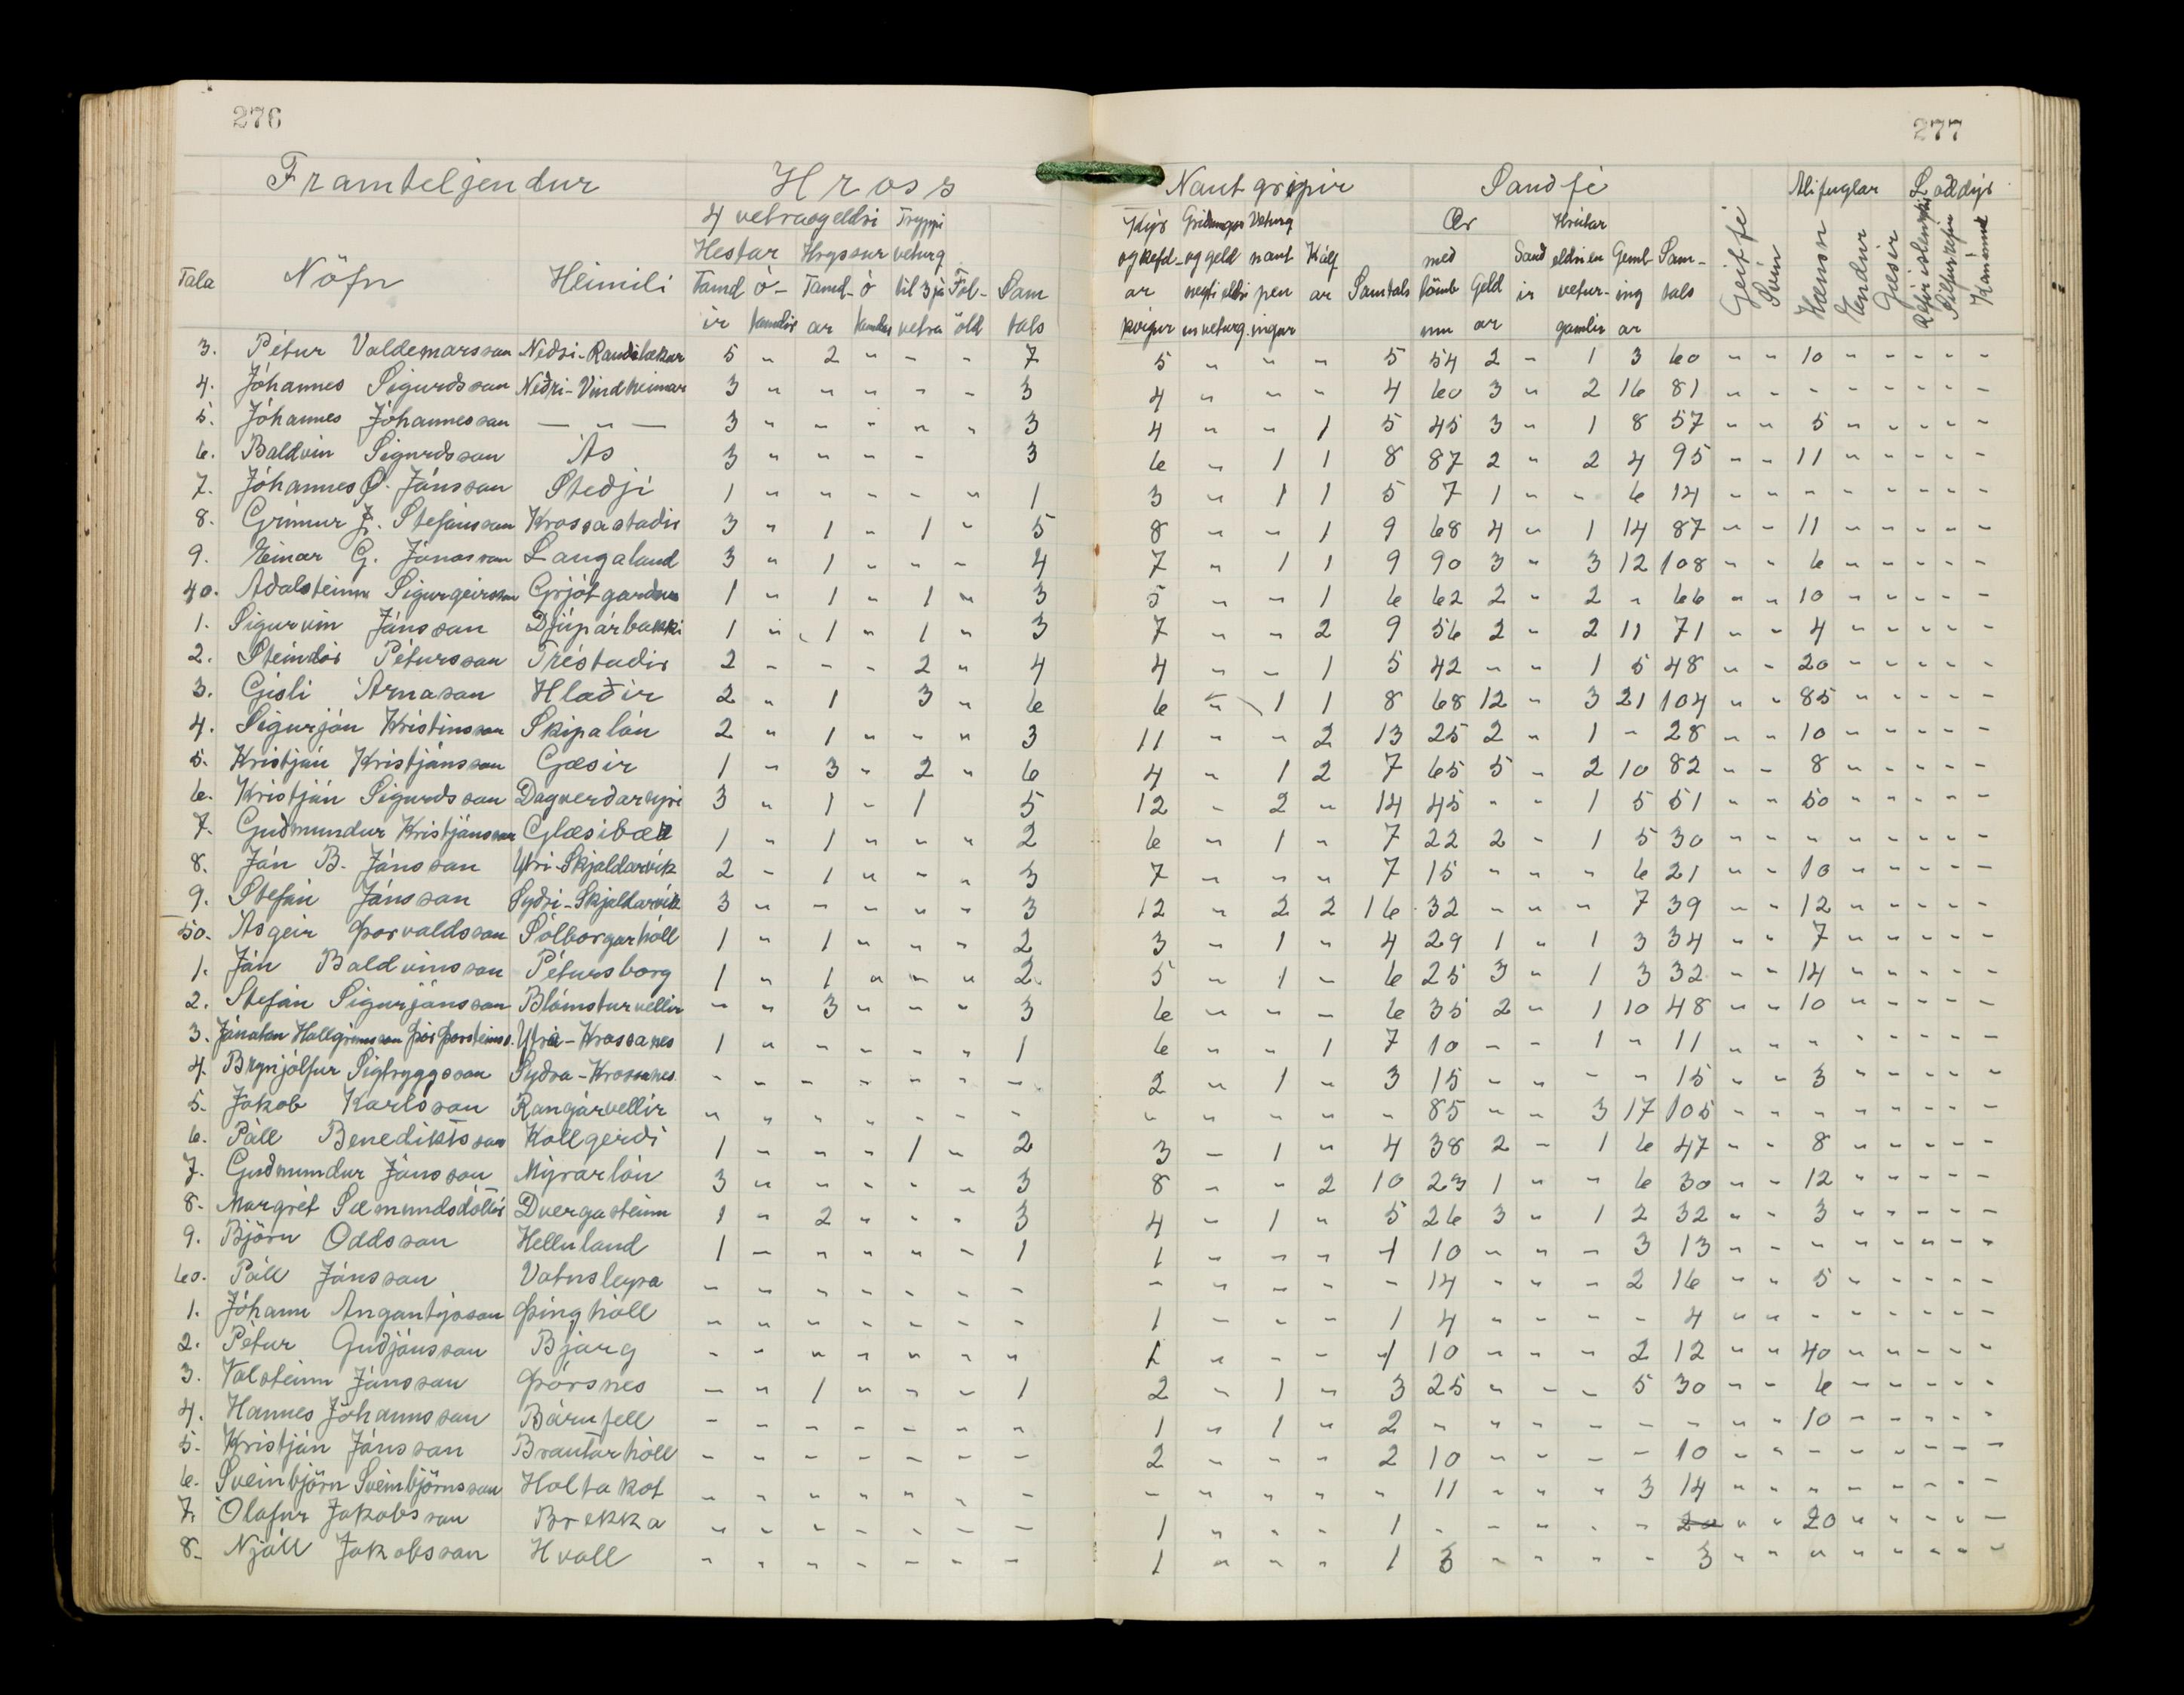 276
277
Framteljendur Hross Nautgripir Sauðfé Alifuglar Loðdýr
4 vetra og eldri Tryppi Kýr Griðungar Veturg Ær Hrútar Geitfé Svín Hænsn Endur Gæsir Refir íslenskir Silfurrefir Kanínur
Hestar Hryssur veturg og kefd- og geld naut Kálf með Sauð eldri en Geml- Sam-
Tala Nöfn Heimili Tamd- Ó- Tamd- Ó til 3ja Fol- Sam ar neyti eldri pen ar Samtals lömb Geld ir vetur- ing tals
ir tamdir ar tamdar vetra öld tals kvígur en veturg. ingar um ar gamlir ar
3. Pétur Valdemarsson Neðri-Rauðilækur 5 " 2 " " " 7 5 " " " 5 54 2 " 1 3 60 " " 10 " " " " "
4. Jóhannes Sigurðsson Neðri-Vindheimar 3 " " " " " 3 4 " " " 4 60 3 " 2 16 81 " " " " " " " "
5. Jóhannes Jóhannesson — " — 3 " " " " " 3 4 " " 1 5 45 3 " 1 8 57 " " 5 " " " " "
6. Baldvin Sigurðsson Ás 3 " " " " 3 6 " 1 1 8 87 2 " 2 4 95 " " 11 " " " " "
7. Jóhannes Ó. Jónsson Steðji 1 " " " " " 1 3 " 1 1 5 7 1 " " 6 14 " " " " " " " "
8. Grímur J. Stefánsson Krossastaðir 3 " 1 " 1 " 5 8 " " 1 9 68 4 " 1 14 87 " " 11 " " " " "
9. Einar G. Jónasson Laugaland 3 " 1 " " " 4 7 " 1 1 9 90 3 " 3 12 108 " " 6 " " " " "
40. Aðalsteinn Sigurgeirsson Grjótgarður 1 " 1 " 1 " 3 5 " " 1 6 62 2 " 2 " 66 " " 10 " " " " "
1. Sigurvin Jónsson Djúpárbakki 1 " 1 " 1 " 3 7 " " 2 9 56 2 " 2 11 71 " " 4 " " " " "
2. Steindór Pétursson Tréstaðir 2 " " " 2 " 4 4 " " 1 5 42 " " 1 5 48 " " 20 " " " " "
3. Gísli Árnason Hlaðir 2 " 1 3 " 6 6 " 1 1 8 68 12 " 3 21 104 " " 85 " " " " "
4. Sigurjón Kristinsson Skipalón 2 " 1 " " " 3 11 " " 2 13 25 2 " 1 " 28 " " 10 " " " " "
5. Kristján Kristjánsson Gæsir 1 " 3 " 2 " 6 4 " 1 2 7 65 5 " 2 10 82 " " 8 " " " " "
6. Kristján Sigurðsson Dagverðareyri 3 " 1 " 1 5 12 " 2 " 14 45 " " 1 5 51 " " 50 " " " " "
7. Guðmundur Kristjánsson Glæsibær 1 " 1 " " " 2 6 " 1 " 7 22 2 " 1 5 30 " " " " " " " "
8. Jón B. Jónsson Ytri-Skjaldarvík 2 " 1 " " " 3 7 " " " 7 15 " " " 6 21 " " 10 " " " " "
9. Stefán Jónsson Syðri-Skjaldarvík 3 " " " " " 3 12 " 2 2 16 32 " " " 7 39 " " 12 " " " " "
50. Ásgeir Þorvaldsson Sólborgarhóll 1 " 1 " " " 2 3 " 1 " 4 29 1 " 1 3 34 " " 7 " " " " "
1. Jón Baldvinsson Pétursborg 1 " 1 " " " 2 5 " 1 " 6 25 3 " 1 3 32 " " 14 " " " " "
2. Stefán Sigurjónsson Blómsturvellir " " 3 " " " 3 6 " " " 6 35 2 " 1 10 48 " " 10 " " " " "
3. Jónatan Hallgrímsson Þór Þorsteinss. Ytra-Krossanes 1 " " " " " 1 6 " " 1 7 10 " " 1 " 11 " " " " " " " "
4. Brynjólfur Sigtryggsson Syðra-Krossanes " " " " " " " 2 " 1 " 3 15 " " " " 15 " " 3 " " " " "
5. Jakob Karlsson Rangárvellir " " " " " " " " " " " " 85 " " 3 17 105 " " " " " " " "
6. Páll Benediktsson Kollgerði 1 " " " 1 " 2 3 " 1 " 4 38 2 " 1 6 47 " " 8 " " " " "
7. Guðmundur Jónsson Mýrarlón 3 " " " " " 3 8 " " 2 10 23 1 " " 6 30 " " 12 " " " " "
8. Margrét Sæmundsdóttir Dvergasteinn 1 " 2 " " " 3 4 " 1 " 5 26 3 " 1 2 32 " " 3 " " " " "
9. Björn Oddsson Helluland 1 " " " " " 1 1 " " " 1 10 " " " 3 13 " " " " " " " "
60. Páll Jónsson Vatnsleysa " " " " " " " " " " " " 14 " " " 2 16 " " 5 " " " " "
1. Jóhann Angantýsson Þinghóll " " " " " " " 1 " " " 1 4 " " " " 4 " " " " " " " "
2. Pétur Guðjónsson Bjarg " " " " " " " 1 " " " 1 10 " " " 2 12 " " 40 " " " " "
3. Valsteinn Jónsson Þórsnes " " 1 " " " 1 2 " 1 " 3 25 " " " 5 30 " " 6 " " " " "
4. Hannes Jóhannsson Bárufell " " " " " " " 1 " 1 " 2 " " " " " " " " 10 " " " " "
5. Kristján Jónsson Brautarhóll " " " " " " " 2 " " " 2 10 " " " " 10 " " " " " " " "
6. Sveinbjörn Sveinbjörnsson Holtakot " " " " " " " " " " " " 11 " " " 3 14 " " " " " " " "
7. Ólafur Jakobsson Brekka " " " " " " " 1 " " " 1 " " " " " 20 " " 20 " " " " "
8. Njáll Jakobsson Hvoll " " " " " " " 1 " " " 1 3 " " " " 3 " " " " " " " "